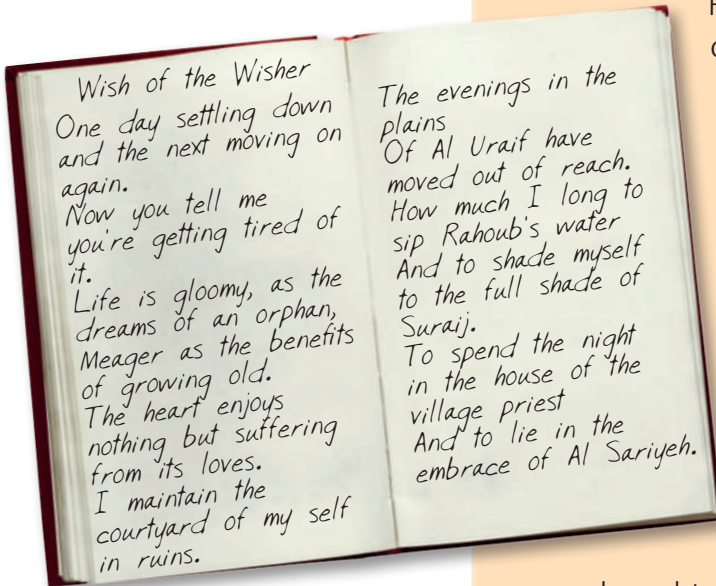 Wish of the Wisher
One day settling down
and the next moving on
again.
Now you tell me
you're getting tired of
it.
Life is gloomy, as the
dreams of an orphan,
Meager as the benefits
of growing old.
The heart enjoys
nothing but suffering
from its loves.
I maintain the
courtyard of my self
in ruins.
The evenings in the
plains
Of Al Uraif have
moved out of reach.
How much I long to
sip Rahoub's water
And to shade myself
to the full shade of
Suraij.
To spend the night
in the house of the
village priest
And to lie in the
embrace of Al Sariyeh.